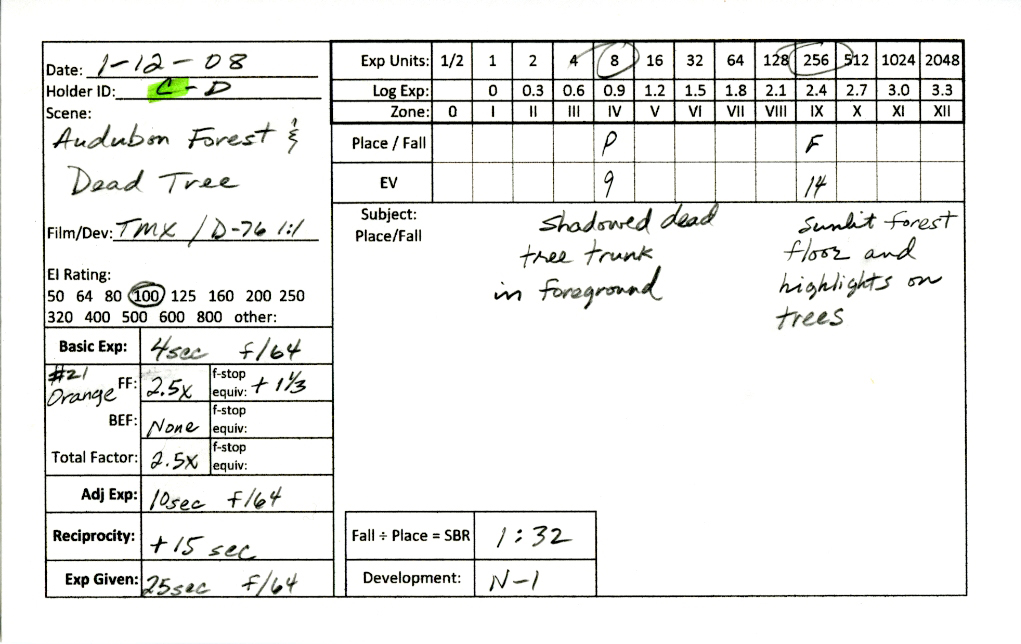 Date: 1-12-08
Holder ID: C-D
Scene:
Audubon Forest &
Dead Tree
Film/Dev: TMX / D-76 1:1
EI Rating:
50 64 80 100 125 160 200 250
320 400 500 600 800 other:
Basic Exp: 4sec f/64
#21
Orange FF: 2.5x f-stop equiv: + 1 1/3
BEF: None f-stop equiv:
Total Factor: 2.5x f-stop equiv:
Adj Exp: 10sec f/64
Reciprocity: +15 sec
Exp Given: 25sec f/64
Exp Units: 1/2 1 2 4 8 16 32 64 128 256 512 1024 2048
Log Exp: 0 0.3 0.6 0.9 1.2 1.5 1.8 2.1 2.4 2.7 3.0 3.3
Zone: 0 I II III IV V VI VII VIII IX X XI XII
Place / Fall P F
EV 9 14
Subject:
Place/Fall
Shadowed dead
tree trunk
in foreground
Sunlit forest
floor and
highlights on
trees
Fall ÷ Place = SBR 1:32
Development: N-1